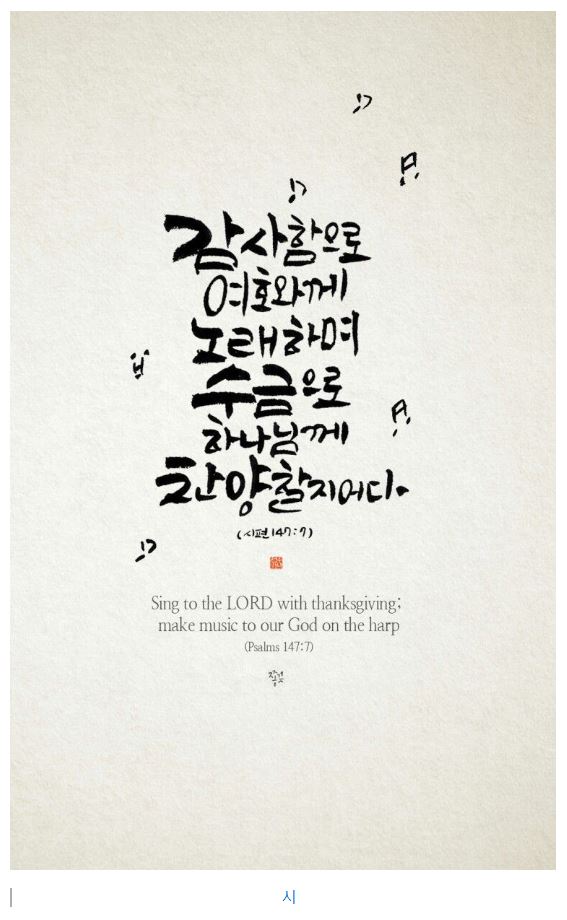 감사함으로
여호와께
노래하며
수금으로
하나님께
찬양할지어다.
(시편 147:7)
Sing to the LORD with thanksgiving;
make music to our God on the harp
(Psalms 147:7)
시